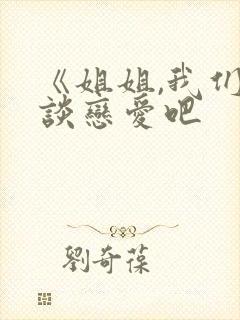 《姐姐,我们
談戀愛吧
劉奇葆